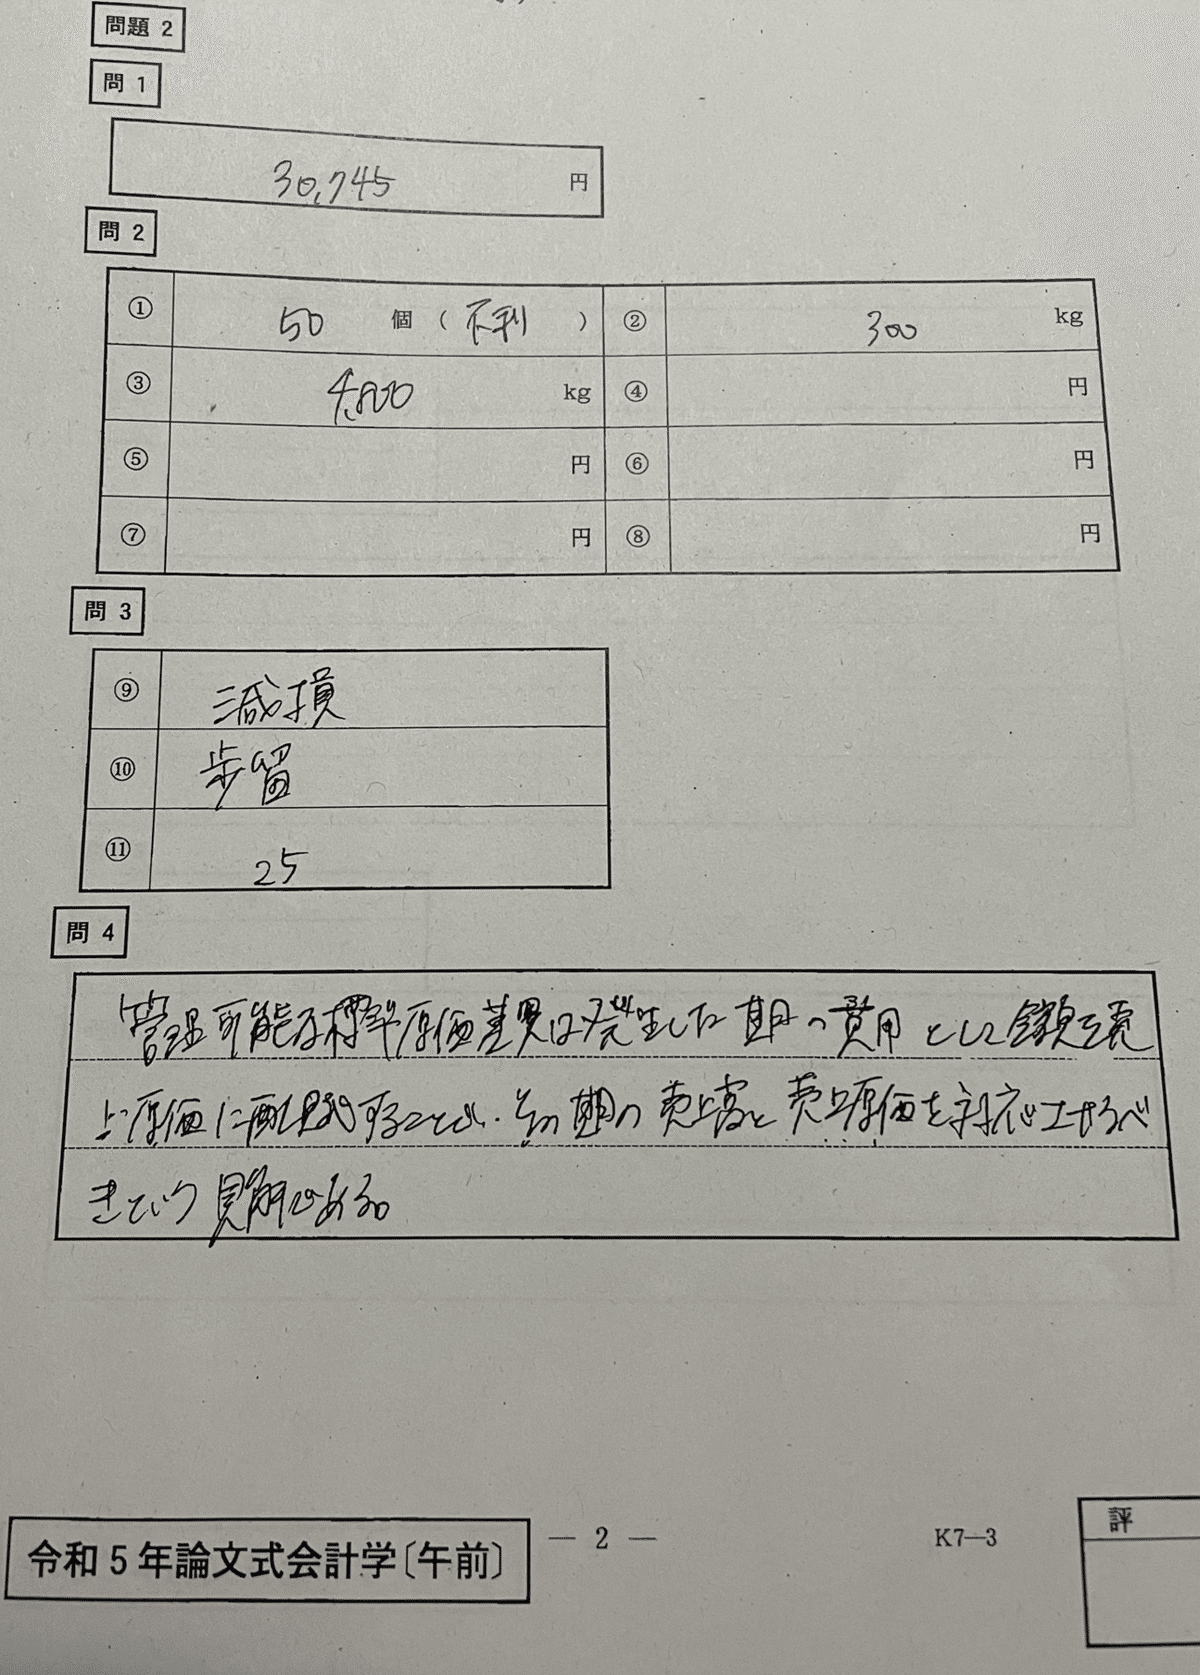 問題 2
問 1
30,745 円
問 2
① 50 個 ( 不利 ) ② 300 kg
③ 4,800 kg ④ 円
⑤ 円 ⑥ 円
⑦ 円 ⑧ 円
問 3
⑨ 減損
⑩ 歩留
⑪ 25
問 4
管理可能な標準原価差異は発生した期の費用として全額を売
上原価に賦課することで、その期の売上高と売上原価を対応させるべ
きという見解である。
令和5年論文式会計学〔午前〕
― 2 ―
K7―3
評